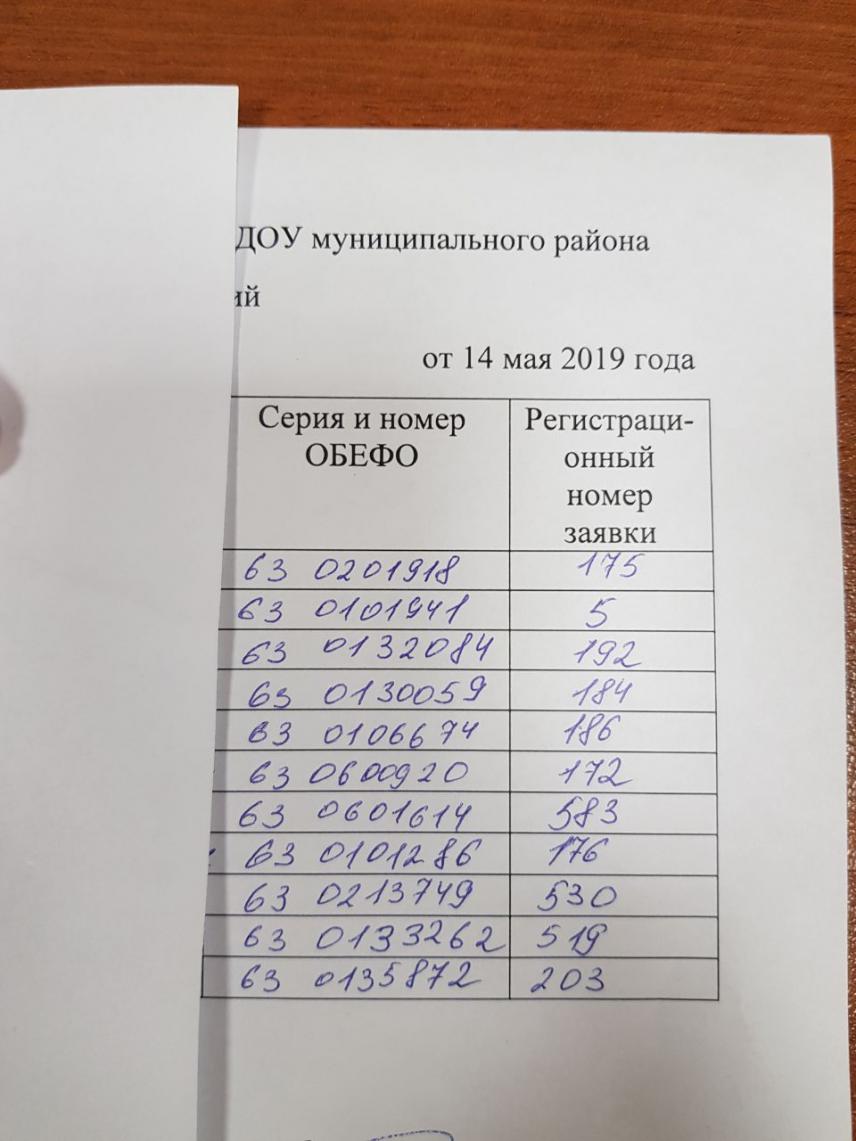 ДОУ муниципального района
ий
от 14 мая 2019 года
Серия и номер ОБЕФО
Регистраци-
онный
номер
заявки
63 0201918 175
63 0101941 5
63 0132084 192
63 0130059 184
63 0106674 186
63 0600920 172
63 0601614 583
63 0101286 176
63 0213749 530
63 0133262 519
63 0135872 203